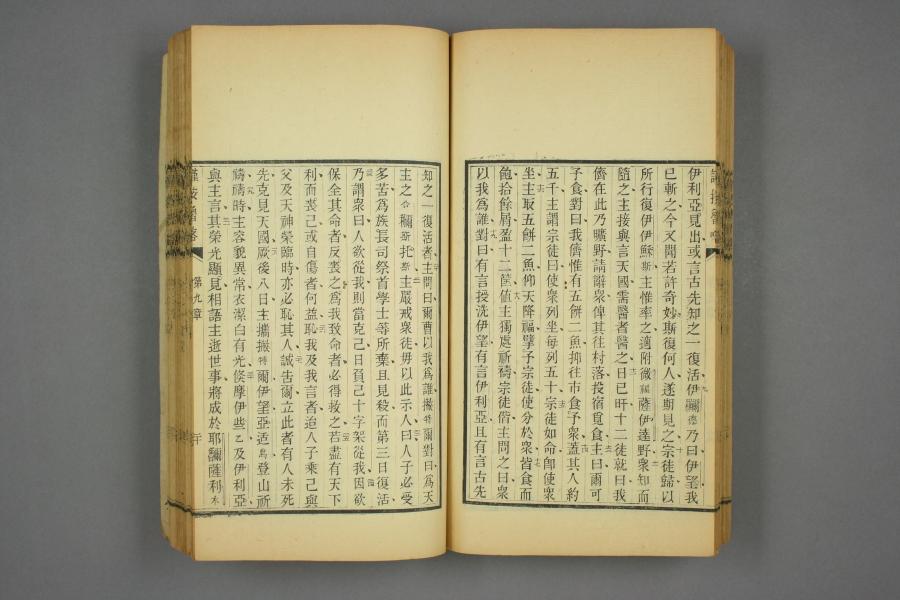 伊利亞見出或言古先知之一復活伊爾德乃曰伊望我
已斬之今又聞若許奇妙斯復何人遂朂見之宗徒歸以
所行復伊伊穌斯主惟率之適附微薩伊達野衆知而
隨之主接與言天國需醫者醫之日已旰十二徒就曰我
儕在此乃曠野請辭衆俾其往村落投宿覓食主曰爾可
予食對曰我儕惟有五餅二魚抑往市食予衆蓋其人約
五千主謂宗徒曰使衆列坐每列五十宗徒如命卽使衆
坐主取五餅二魚仰天降福擘予宗徒使分於衆皆食而
飽拾餘屑盈十二筐値主獨處祈禱宗徒偕主問之曰衆
以我爲誰對曰有言授洗伊望有言伊利亞且有言古先
知之一復活者主問曰爾曹以我爲誰撇特爾對曰爲天
主之合穪斯托斯主嚴戒衆徒毋以此示人曰人子必受
多苦爲族長司祭首學士等所棄且見殺而第三日復活
乃謂衆曰人欲從我則當克己日負己十字架從我因欲
保全其命者反喪之爲我致命者必得救之若盡有天下
利而喪己或自傷者何益恥我及我言者迨人子乘己與
父及天神榮臨時亦必恥其人誠吿爾立此者有人未死
先克見天國厥後八日主攜撇特爾伊望亞适烏登山祈
禱禱時主容貌異常衣潔白有光倐摩伊些乙及伊利亞
與主言其榮光顯見相語主逝世事將成於耶穪薩利木
第九章